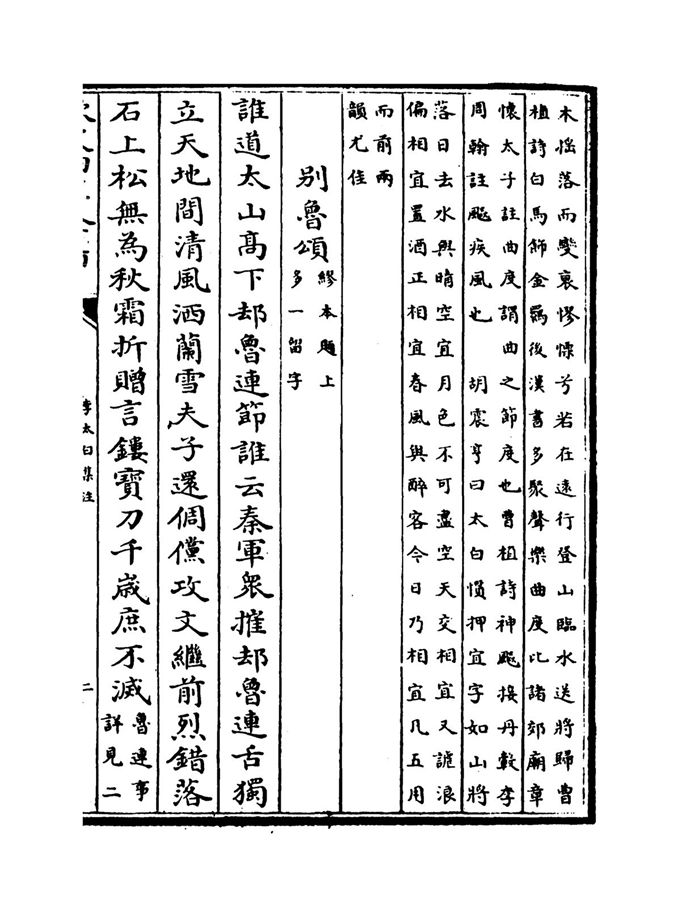 木搖落而變衰憀慄兮若在遠行登山臨水送將歸曹
植詩白馬飾金羈後漢書多聚聲樂曲度比諸郊廟章
懷太子註曲度謂曲之節度也曹植詩神飈接丹轂李
周翰註飈疾風也 胡震亨曰太白慣押宜字如山將
落日去水與晴空宜月色不可盡空天交相宜又謔浪
偏相宜置酒正相宜春風與醉客今日乃相宜凡五用
而前兩
韻尤佳
别魯頌
繆本題上
多一留字
誰道太山髙下却魯連節誰云秦軍衆摧却魯連舌獨
立天地間清風洒蘭雪夫子還倜儻攻文繼前烈錯落
石上松無為秋霜折贈言鏤寶刀千歳庶不滅
魯連事
詳見二
李太白集注
二